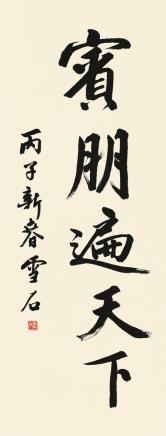 賓朋遍天下
丙子新春雪石